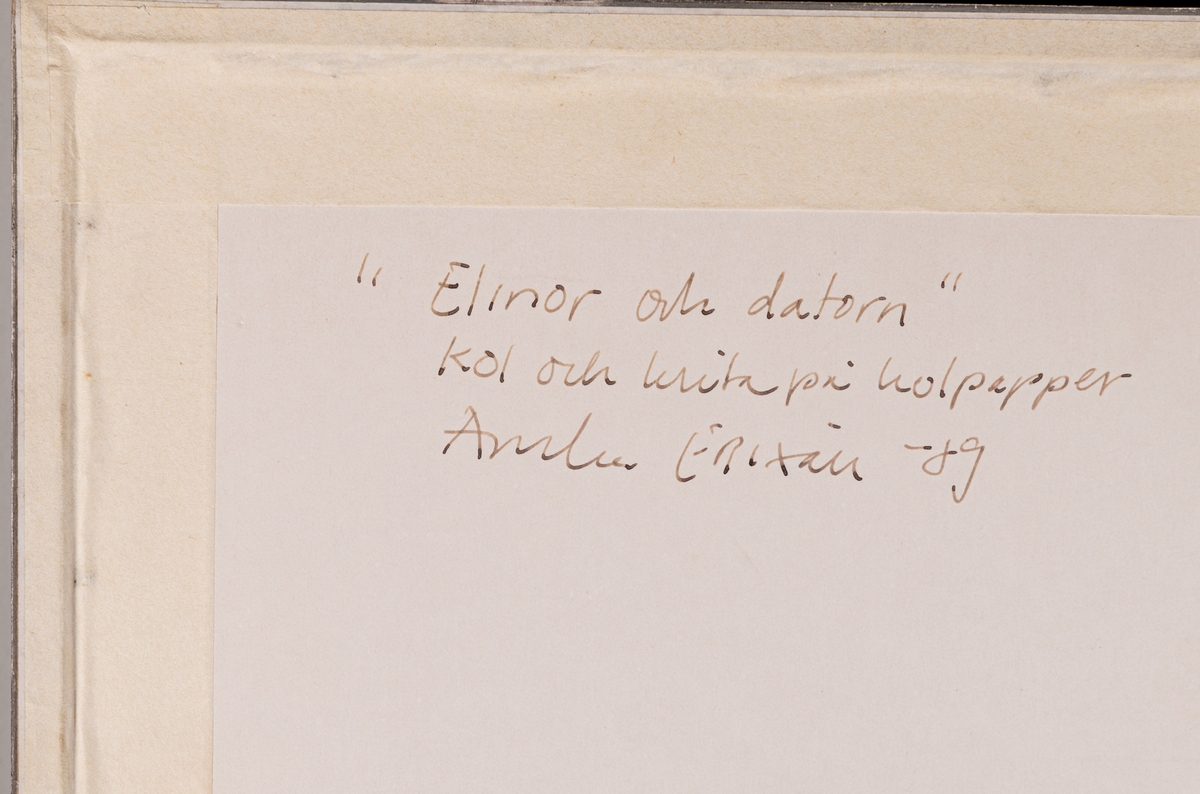 "Elinor och datorn"
Kol och krita på kolpapper
Erixån -89